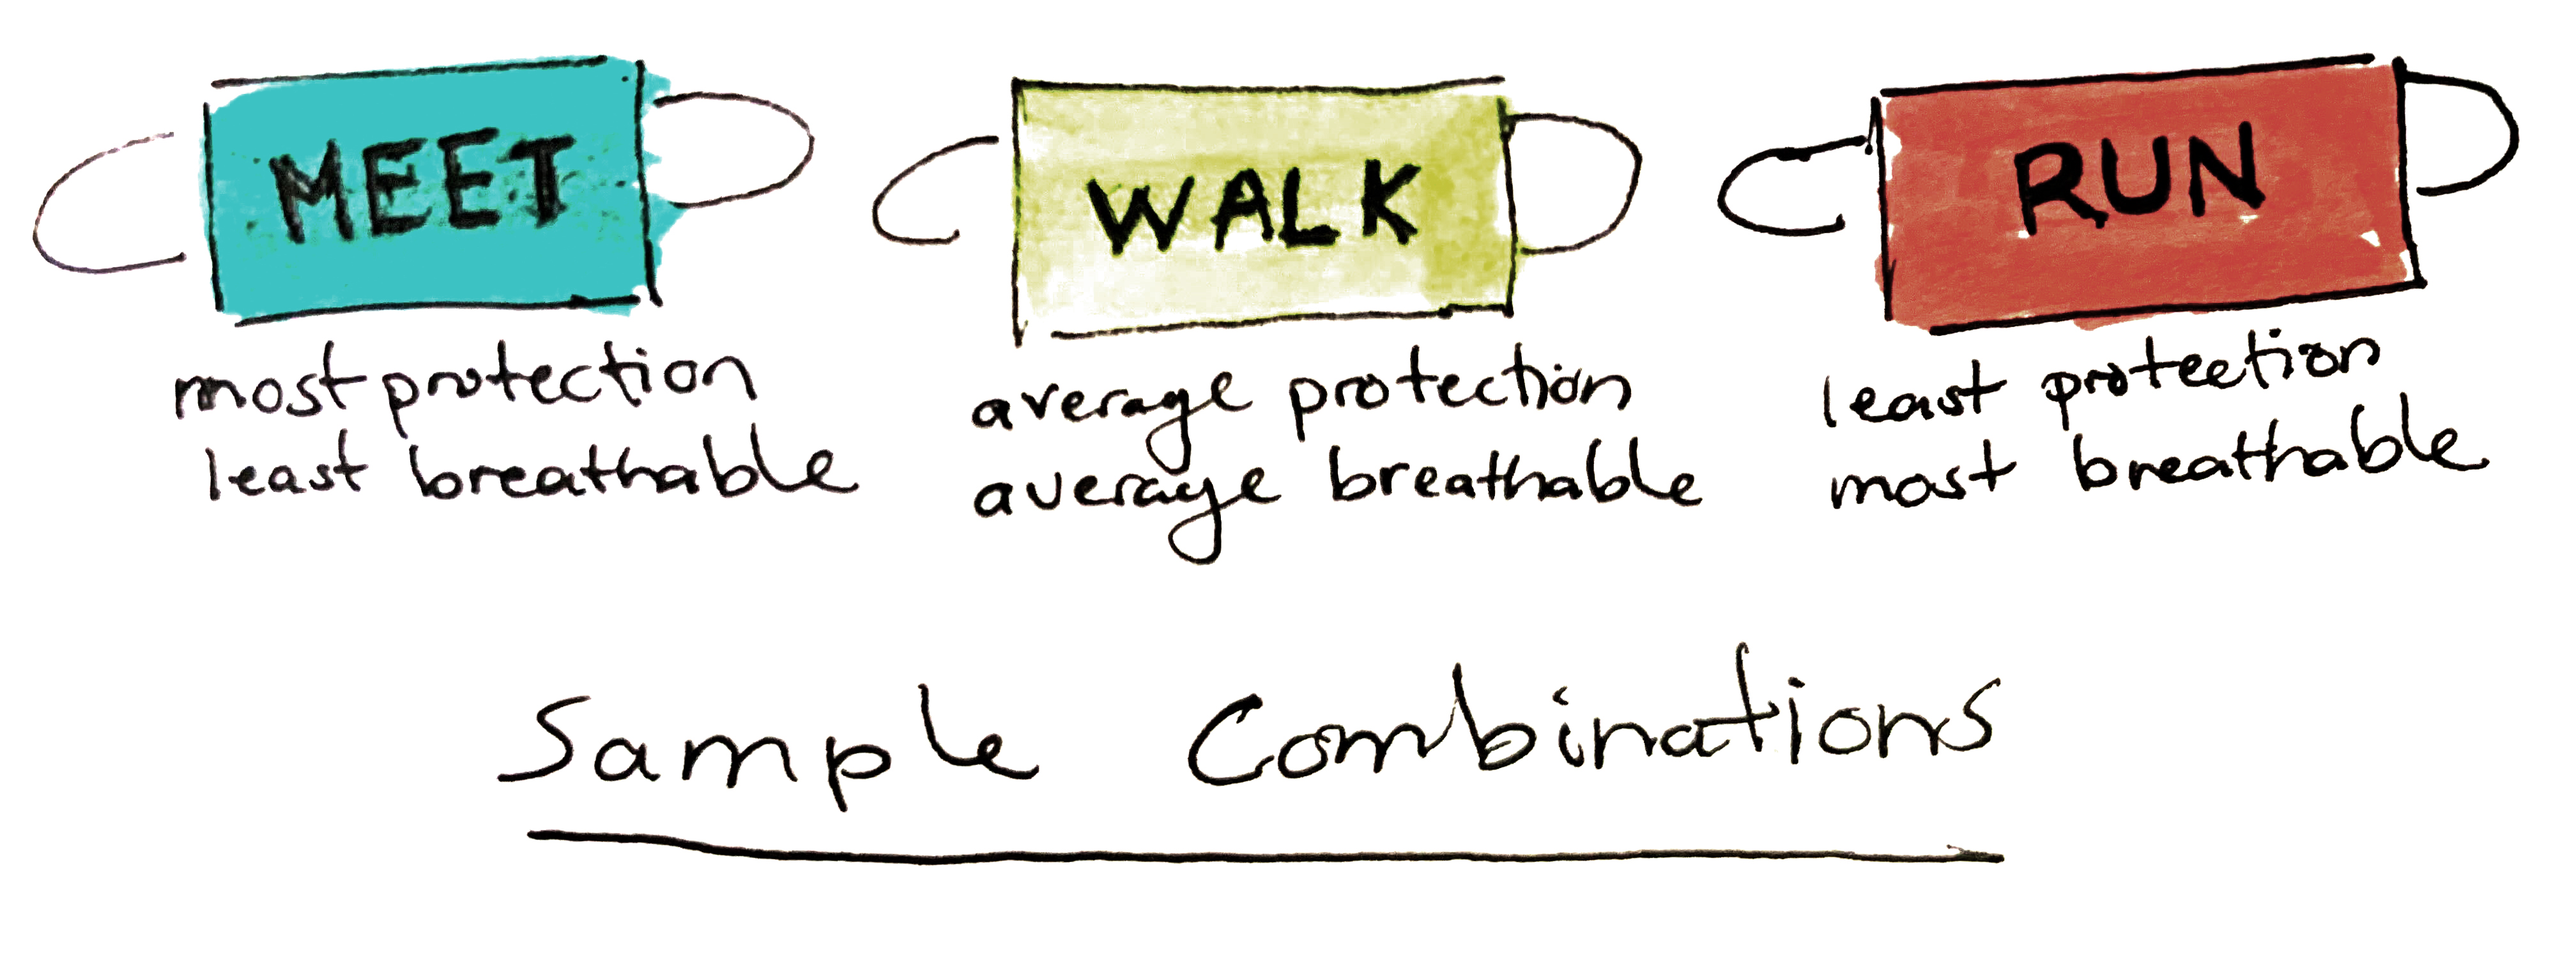 MEET
most protection
least breathable
WALK
average protection
average breathable
RUN
least protection
most breathable
Sample Combinations